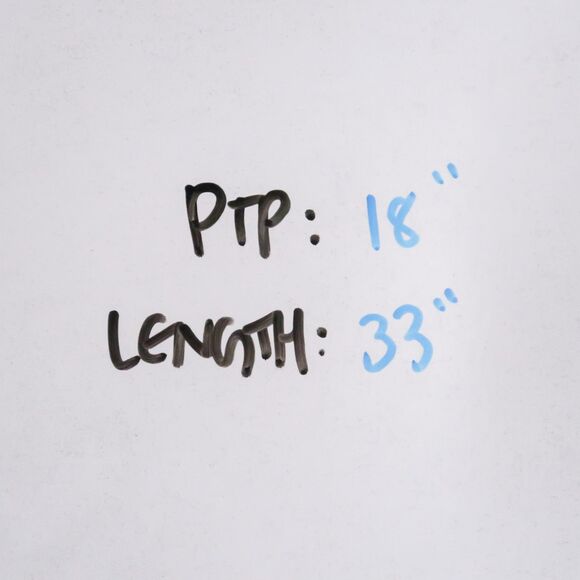 PTP: 18"
LENGTH: 33"